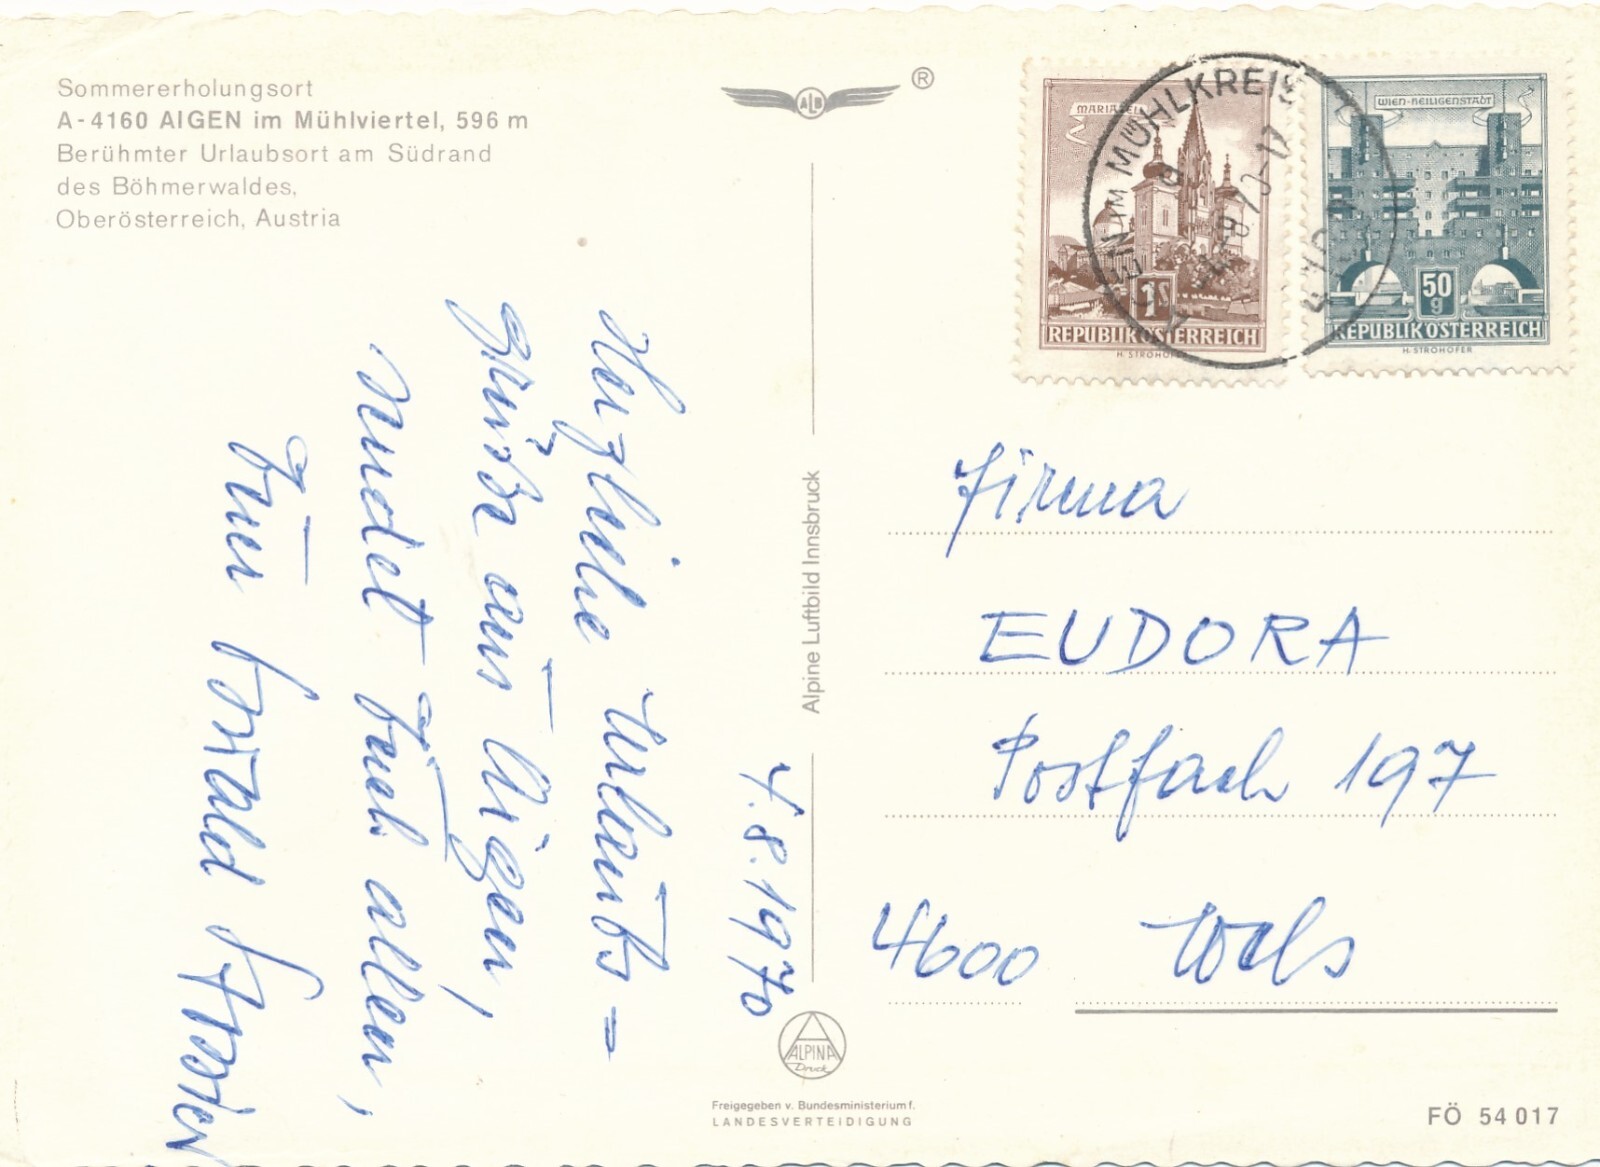 Sommererholungsort
A-4160 AIGEN im Mühlviertel, 596 m
Berühmter Urlaubsort am Südrand
des Böhmerwaldes,
Oberösterreich, Austria
ALB
®
MARIAZELL
1S
REPUBLIK ÖSTERREICH
H. STROHOFER
WIEN-HEILIGENSTADT
50
g
REPUBLIK ÖSTERREICH
H. STROHOFER
AIGEN IM MÜHLKREIS
4.-8.70-17
4.8.1970
Herzliche Urlaubs=
grüße aus Aigen,
sendet Euch allen,
Euer
Alpine Luftbild Innsbruck
Firma
EUDORA
Postfach 197
4600 Wels
ALPINA
Druck
Freigegeben v. Bundesministerium f.
LANDESVERTEIDIGUNG
FÖ 54 017